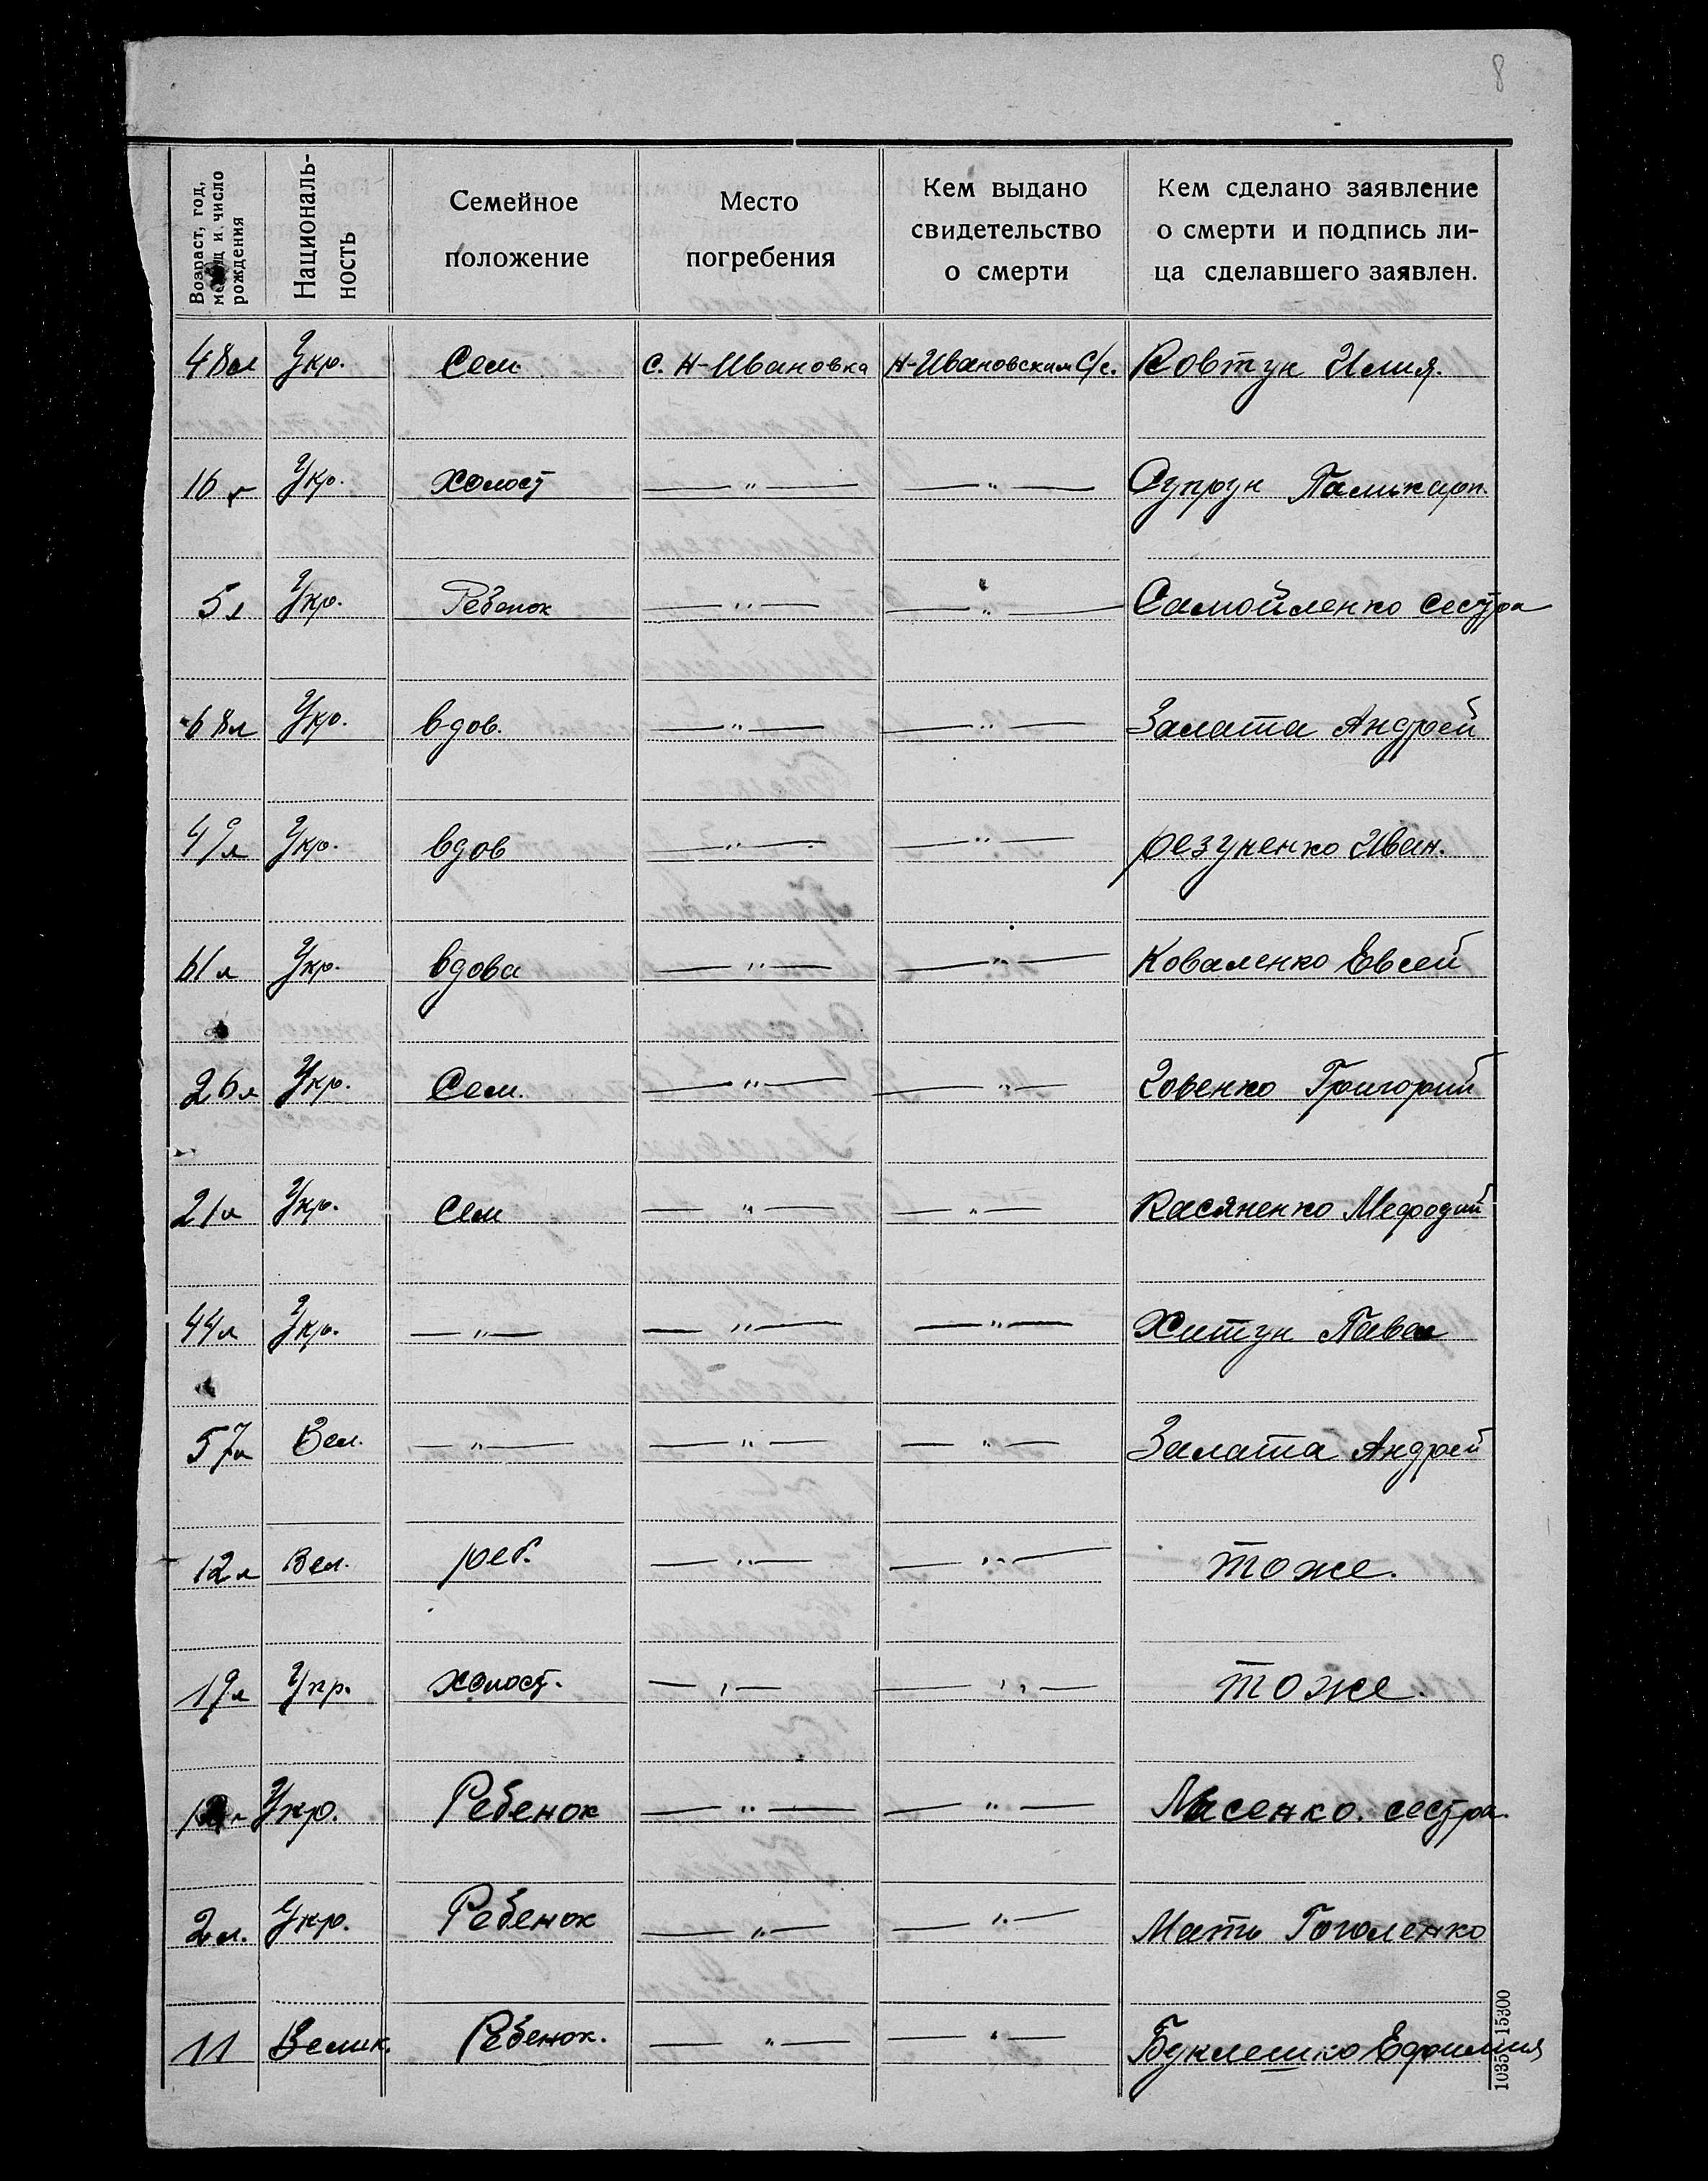 8
Возраст, год, месяц и число рождения | Националь-ность | Семейное положение | Место погребения | Кем выдано свидетельство о смерти | Кем сделано заявление о смерти и подпись ли-ца сделавшего заявлен.
48л Укр. Сем. с. Н-Ивановка Н-Ивановским С/с. Ковтун Илия.
16 г Укр. Холост — " — — " — Супрун Паликарп.
5 л Укр. Ребенок — " — — " — Самойленко сестра
68л Укр. вдов. — " — — " — Залата Андрей
49л Укр. вдов — " — — " — резуненко Иван.
61л Укр. вдова — " — — " — Коваленко Евсей
26л Укр. Сем. — " — — " — Григорий
21л Укр. Сем — " — — " — Касяненко Мефодий
44л Укр. — " — — " — — " — Хитун Павел
57л Вел. — " — — " — — " — Залата Андрей
12л Вел. реб. — " — — " — тоже.
19л Укр. холост. — " — — " — тоже.
Укр. Ребенок — " — — " — сестра.
2л. Укр. Ребенок — " — — " — Мать Гоголенко
11 Велик. Ребенок. — " — — " — Буклешко Ефимия
10351-15300